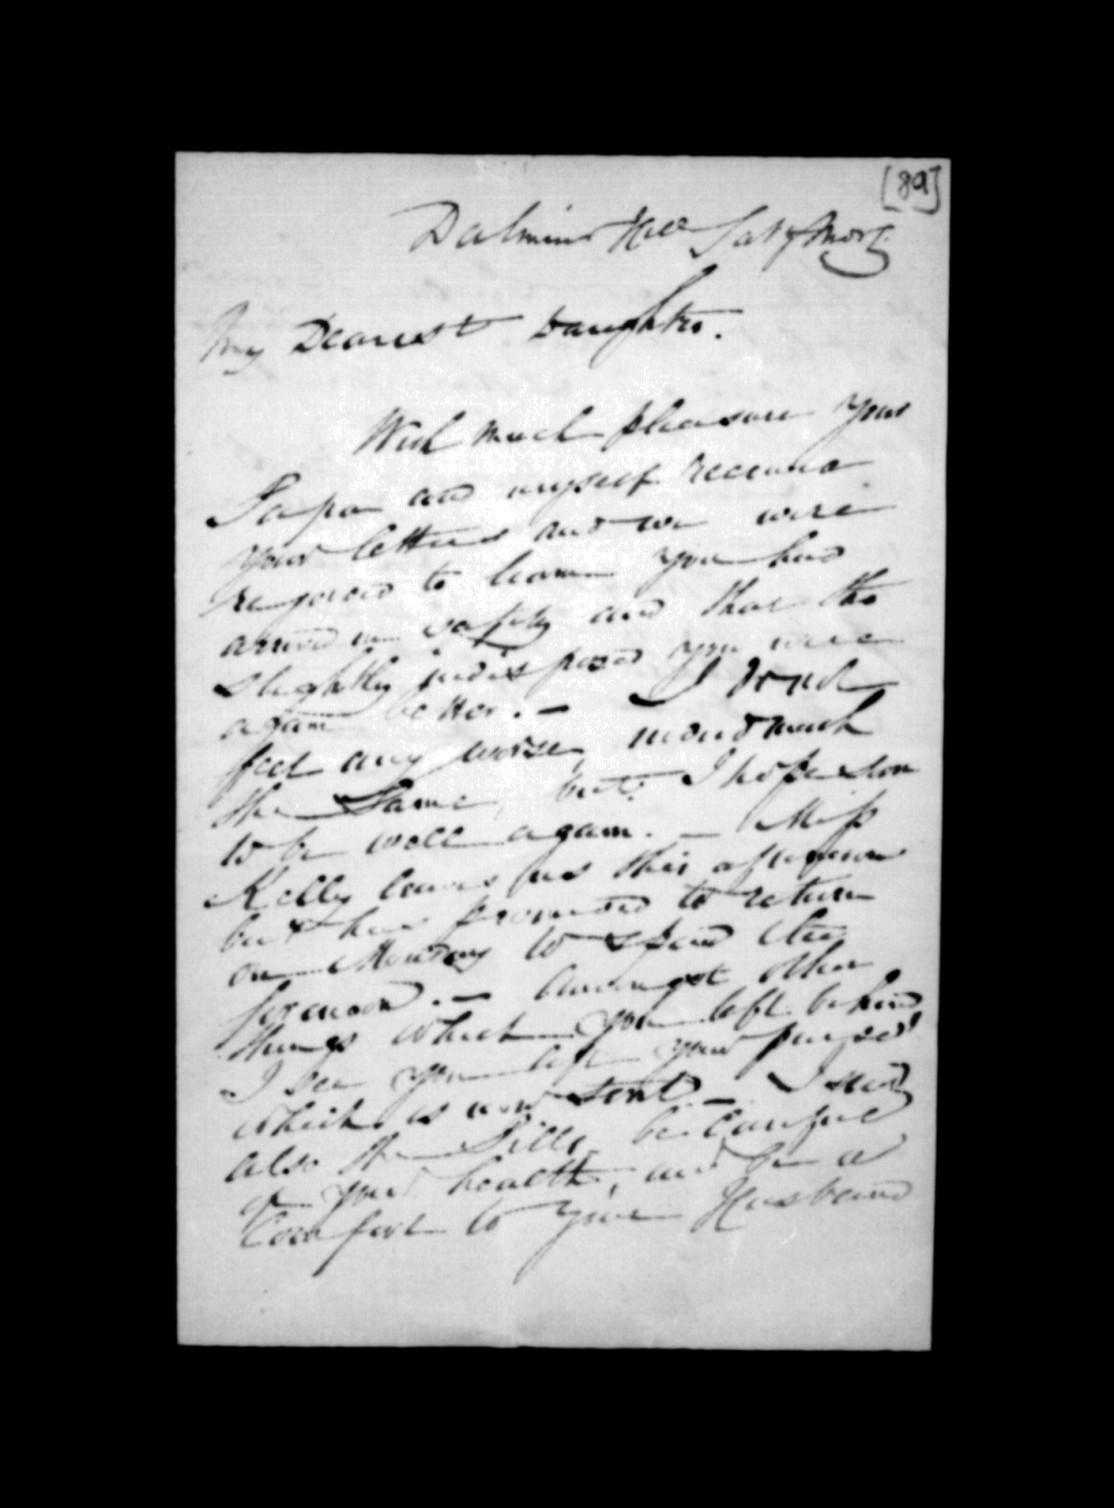 [89]
Dalmins Hill Saty Morg
My Dearest Daughter.
With much pleasure your
Papa and myself received
your letters and we were
rejoiced to learn you had
arrived in safety and that tho
slightly indisposed you were
again better. – I do not
feel any worse, much
the same, but I hope soon
to be well again. – Miss
Kelly leaves us this afternoon
but has promised to return
on Monday to spend the
forenoon. – Amongst other
things which you left behind
I see you left your purse
which is now sent – I send
also the Pills, be careful
of your health, and be a
Comfort to your Husband